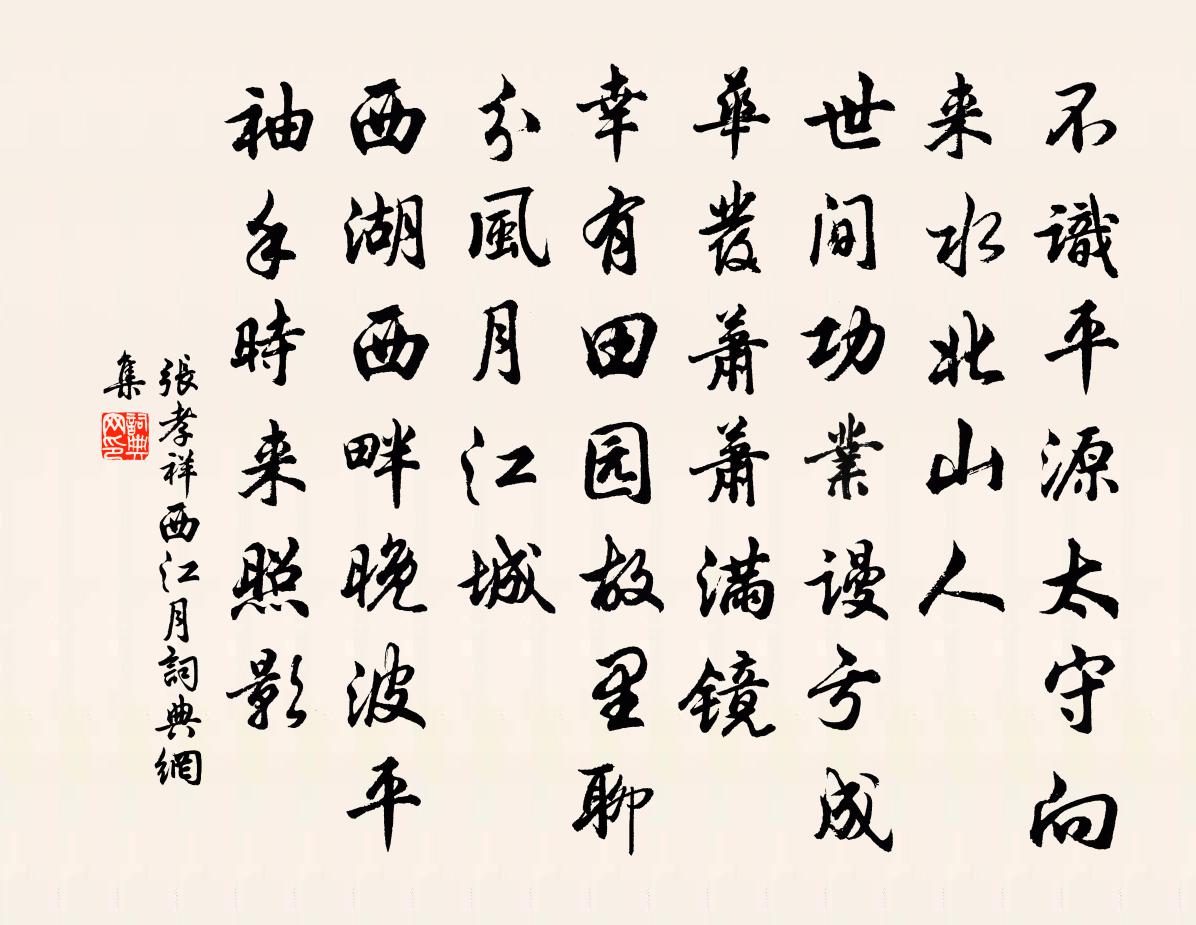 不識平源太守向
来水北山人
世间功業謾亏成
華發蕭蕭滿镜
幸有田园故里聊
分風月江城
西湖西畔晚波平
袖手時来照影
張孝祥西江月詞典網
集
詞典网印